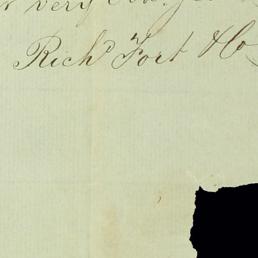 very
Richd Fort & Co